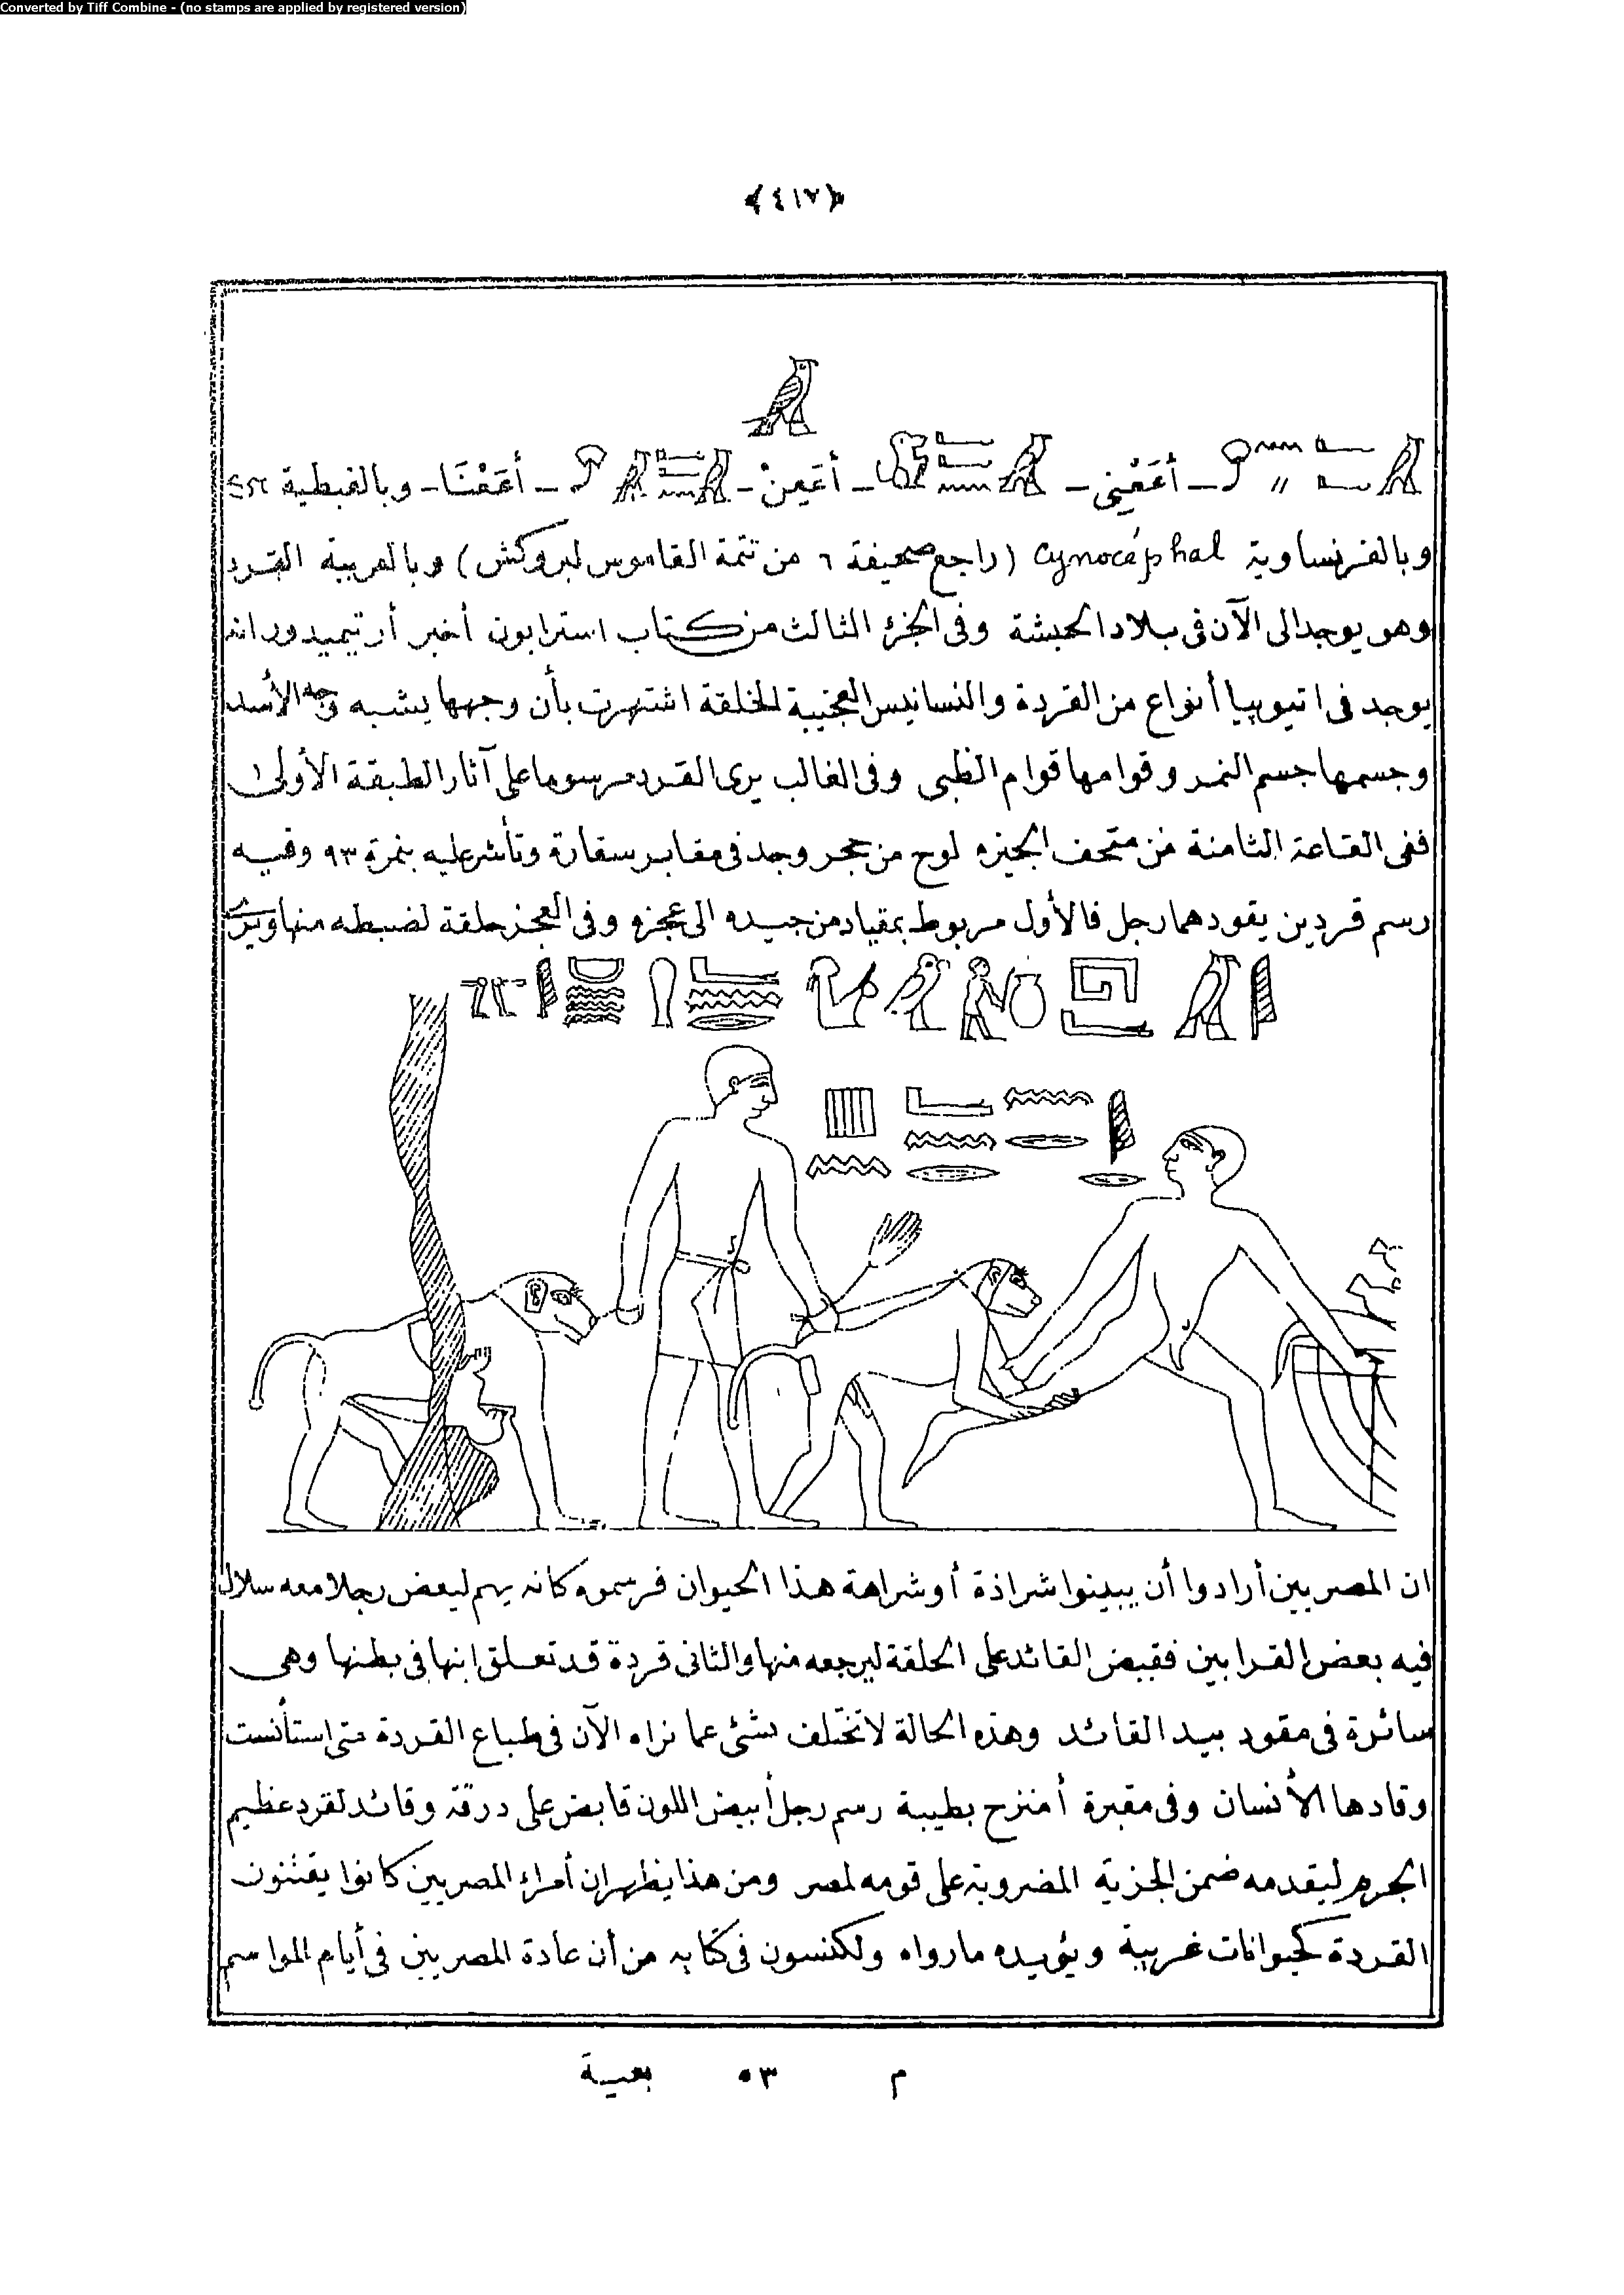 Converted by Tiff Combine - (no stamps are applied by registered version)
﴿٤١٧﴾
أعَعْنِى - أعَعِنْ - أعَعْنَا - وبالقبطية
وبالفرنساوية Cynocéphal (راجع صحيفة ٦ من تتمة القاموس لبروكش) وبالعربية القرد
وهو يوجد الى الآن فى بلاد الحبشة وفى الجزء الثالث من كتاب استرابون أخبر أرتيميدور انه
يوجد فى اتيوبيا أنواع من القردة والنسانيس العجيبة الخلقة اشتهرت بأن وجهها يشبه وجه الأسد
وجسمها جسم النمر وقوامها قوام الظبى وفى الغالب يرى القرد مرسوما على آثار الطبقة الأولى
ففى القاعة الثامنة من متحف الجيزه لوح من حجر وجد فى مقابر سقارة وتأشر عليه بنمرة ٩٣ وفيه
رسم قردين يقودهما رجل فالأول مربوط بمقياد من جيده الى عجزه وفى العجز حلقة لضبطه منها ويرى
ان المصريين أرادوا أن يبينوا شراذة أو شراهة هذا الحيوان فرسموه كانه يهم ليعض رجلا معه سلال
فيه بعض القرابين فقبض القائد على الحلقة ليرجعه منها والثانى قردة قد تعلق ابنها فى بطنها وهى
سائرة فى مقود بيد القائد وهذه الحالة لا تختلف بشئ عما نراه الآن فى طباع القردة متى استأنست
وقادها الأنسان وفى مقبرة أمنزح بطيبة رسم رجل أبيض اللون قابض على درقة وقائد لقرد عظيم
الجرم ليقدمه ضمن الجزية المضروبة على قومه لمصر ومن هذا يظهر ان أمراء المصريين كانوا يقتنون
القردة كحيوانات غريبة ويؤيده مارواه ولكنسون فى كتابه من أن عادة المصريين فى أيام المواسم
م ٥٣ بعية